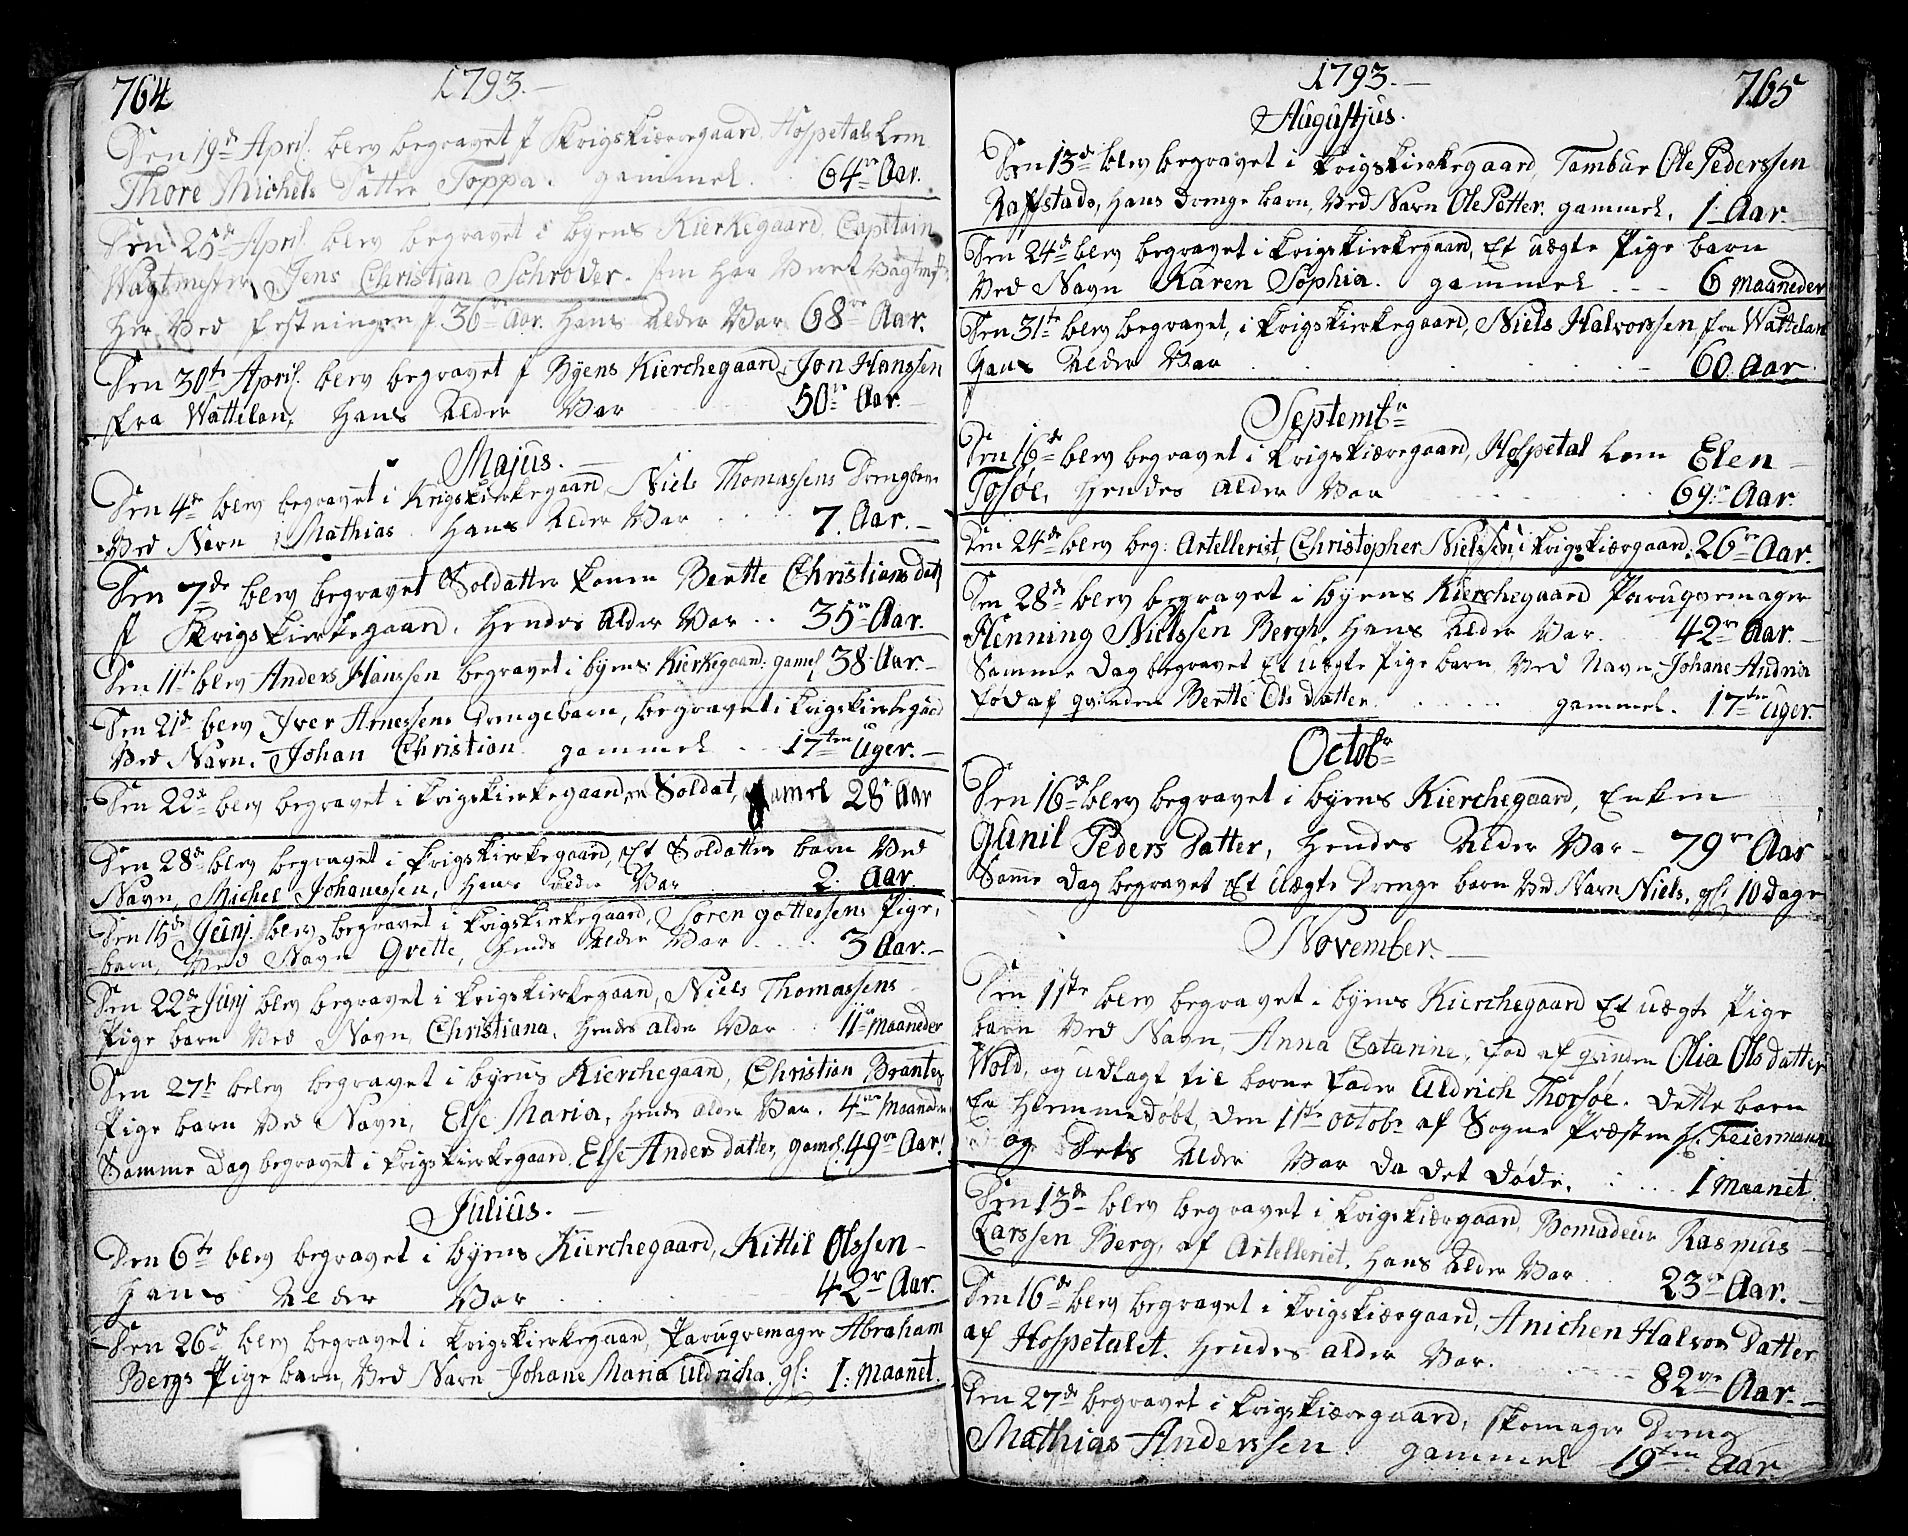 764
1793.
Den 19de April. blev begravet i Krigskiærregaard, Hospetals Lem
Thore Michels Datter Toppa. gammel. 64re Aar.
Den 25de April blev begravet i byens Kierkegaard, Capitain
Wagtmester Jens Christian Schrøder. som har været Vagtmst
her ved festningen i 36re Aar. Hans Alder Var 68re Aar.
Den 30te April. blev begravet i Byens Kierchegaard, Jon Hanssen
fra Wattelan, hans Alder Var 50re Aar.
Majus.
Den 4de blev begravet i Krigskierkegaard, Niels Thomassens Drengbarn
Ved Navn Mathias. Hans Alder Var 7. Aar.
Den 7de blev begravet Soldatter konen Berthe Christians dat
i Krigskierkegaard, Hendes Alder Var .. 35re Aar.
Den 11te blev Anders Hanssen begravet i byens Kierkegaard: gamel 38 Aar.
Den 21de blev Iver Arnessens Drengebarn, begravet i Krigskierkegaard
Ved Navn. Johan Christian gammel .. 17ten Uger.
Den 22de blev begravet i Krigskierkegaard, en Soldat, gamel 28 Aar
Den 28de blev begravet i Krigskierkegaard, Et Soldatter barn Ved
Navn, Michel Johanessen, Hans Alder Var 2. Aar.
Den 15de Junj. blev begravet i Krigskierkegaard, Søren Gottessens Pige,
barn, Ved Navn Grette, Hends Alder Var .... 3 Aar.
Den 22de Junj blev begravet i Krigskierkegaard, Niels Thomassens
Pige barn Ved Navn, Christiana, Hendes Alder Var .. 11re Maaneder
Den 27de belev begravet i byens Kierchegaard, Christian Brantes
Pige barn Ved Navn, Else Maria, Hends Alder Var. 4re Maaneder
Samme Dag begravet i Krigskierkegaard. Else Anders datter, gamel. 49re Aar.
Julius.
Den 6te blev begravet i byens Kierchegaard, Kittil Olssen
Hans Alder Var 42re Aar.
Den 26de blev begravet i Krigskierkegaard, Paruqvemager Abraham
Bergs Pige barn, Ved Navn Johane Maria Uldricha. gl: 1. Maanet.
1793.
765
Augustjus.
Den 13de blev begravet i Krigskierkegaard, Tambur Ole Pederssen
Raffstads, Hans Drenge barn, Ved Navn Ole Petter. gammel, 1 Aar.
Den 24de blev begravet i Krigskierkegaard, Et uægte Pige barn
Ved Navn Karen Sophia. gammel ... 6 Maaneder
Den 31te blev begravet, i Krigskierkegaard, Niels Halvorssen, fra Wattelan
Hans Alder Var 60. Aar
Septembr
Den 16de blev begravet i Krigskiærregaard, Hospetal Lem Elen
Tosøe, Hendes Alder Var 69re Aar.
Den 24de blev beg: Artellerist, Christopher Nielssen, i Krigskiærgaard. 26re Aar.
Den 28de blev begravet i byens Kierchegaard Paruqvemager
Henning Nielssen Bergh, Hans Alder Var. 42re Aar.
Samme Dag begravet Et uægte Pige barn Ved Navn Johane Andrea
fød af qvinden Berthe Ols Datter. gammel. 17ten Uger.
Octobr
Den 16de blev begravet i byens Kierchegaard, Enken
Gunil Peders Datter, Hendes Alder Var - 79re Aar
Same Dag begravet Et Uægte Drenge barn Ved Navn Niels, gl: 10 Dage
November.
Den 11te blev begravet i byens Kierchegaard Et uægte Pige
barn Ved Navn, Anna Catarine, fød af qvinden Olia Ols datter
Wold, og udlagt til barne fader Uldrich Thorsøe. Dette barn
Er Hiemmedøbt, Den 11te octobr af Sogne Præsten Hr. Feiermann
og Dets Alder Var da det døde. 1 Maanet.
Den 13de blev begravet i Krigskiærgaard, Bomadeur Rasmus
Larssen Berg, af Artelleriet. Hans Alder Var. 23re Aar.
Den 16de blev begravet i Krigskiærgaard, Anichen Halvors Datter
af Hospetalet. Hendes Alder Var. 82re Aar.
Den 27de begravet i Krigskiærregaard, Skomager Dreng
Mathias Anderssen. gammel 19ten Aar